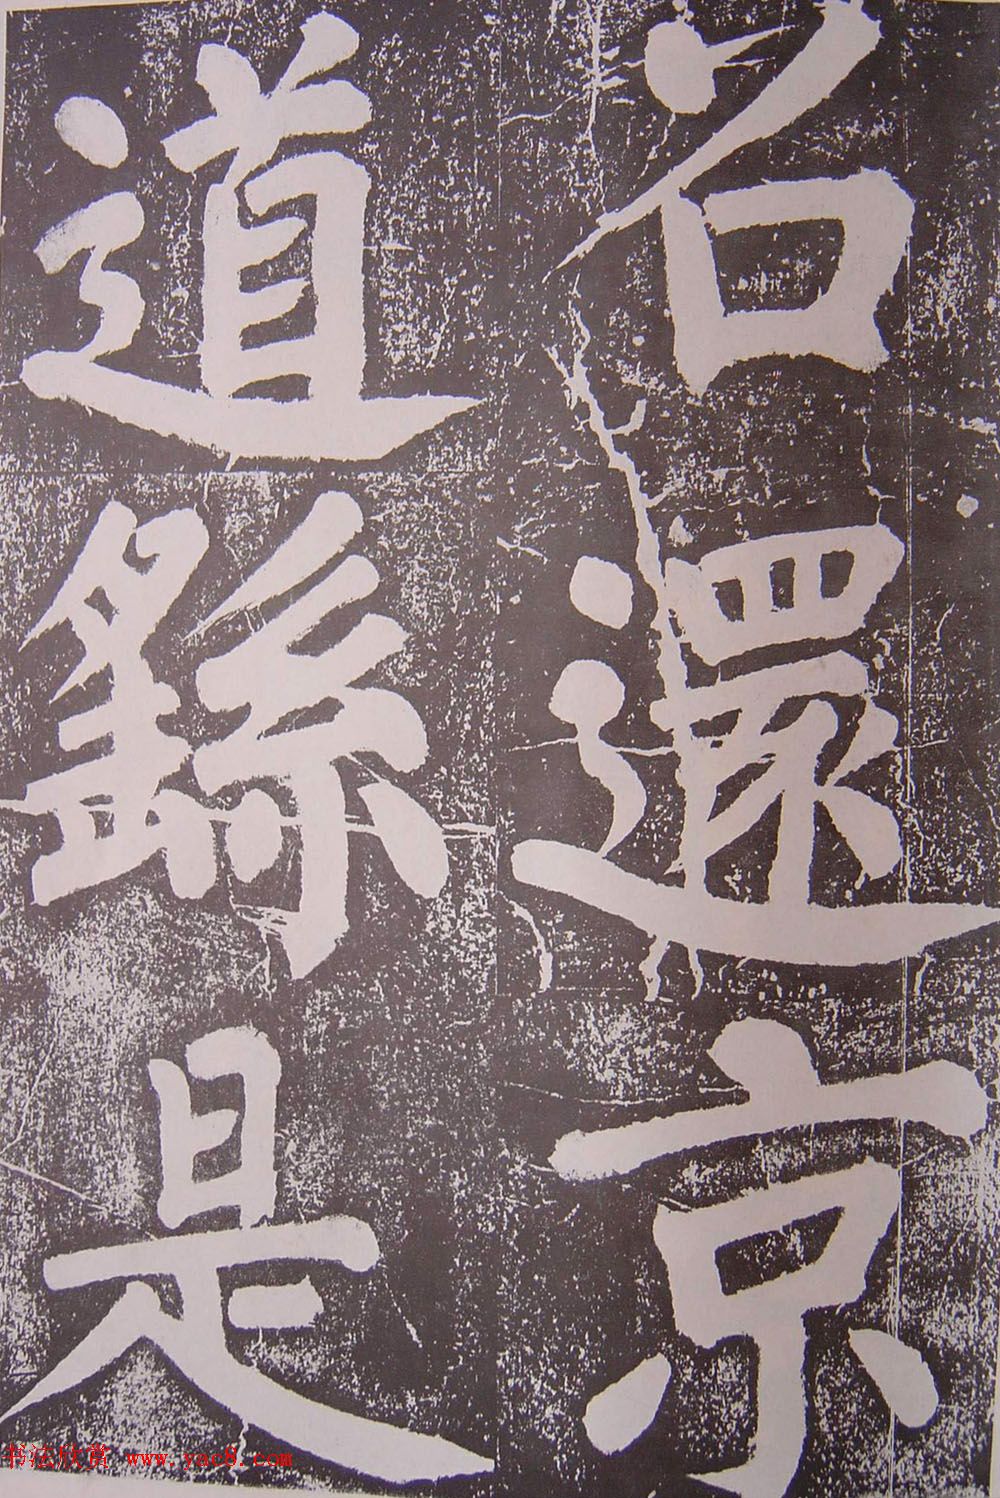 召還京
道繇是
书法欣赏 www.yac8.com